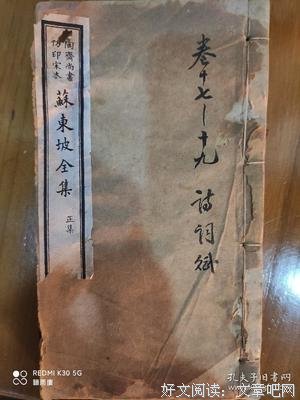 陶齋尚書
仿印宋本
蘇東坡全集
正集
卷十七—十九 詩詞賦
REDMI K30 5G
孔夫子旧书网
好文阅读：文章吧网